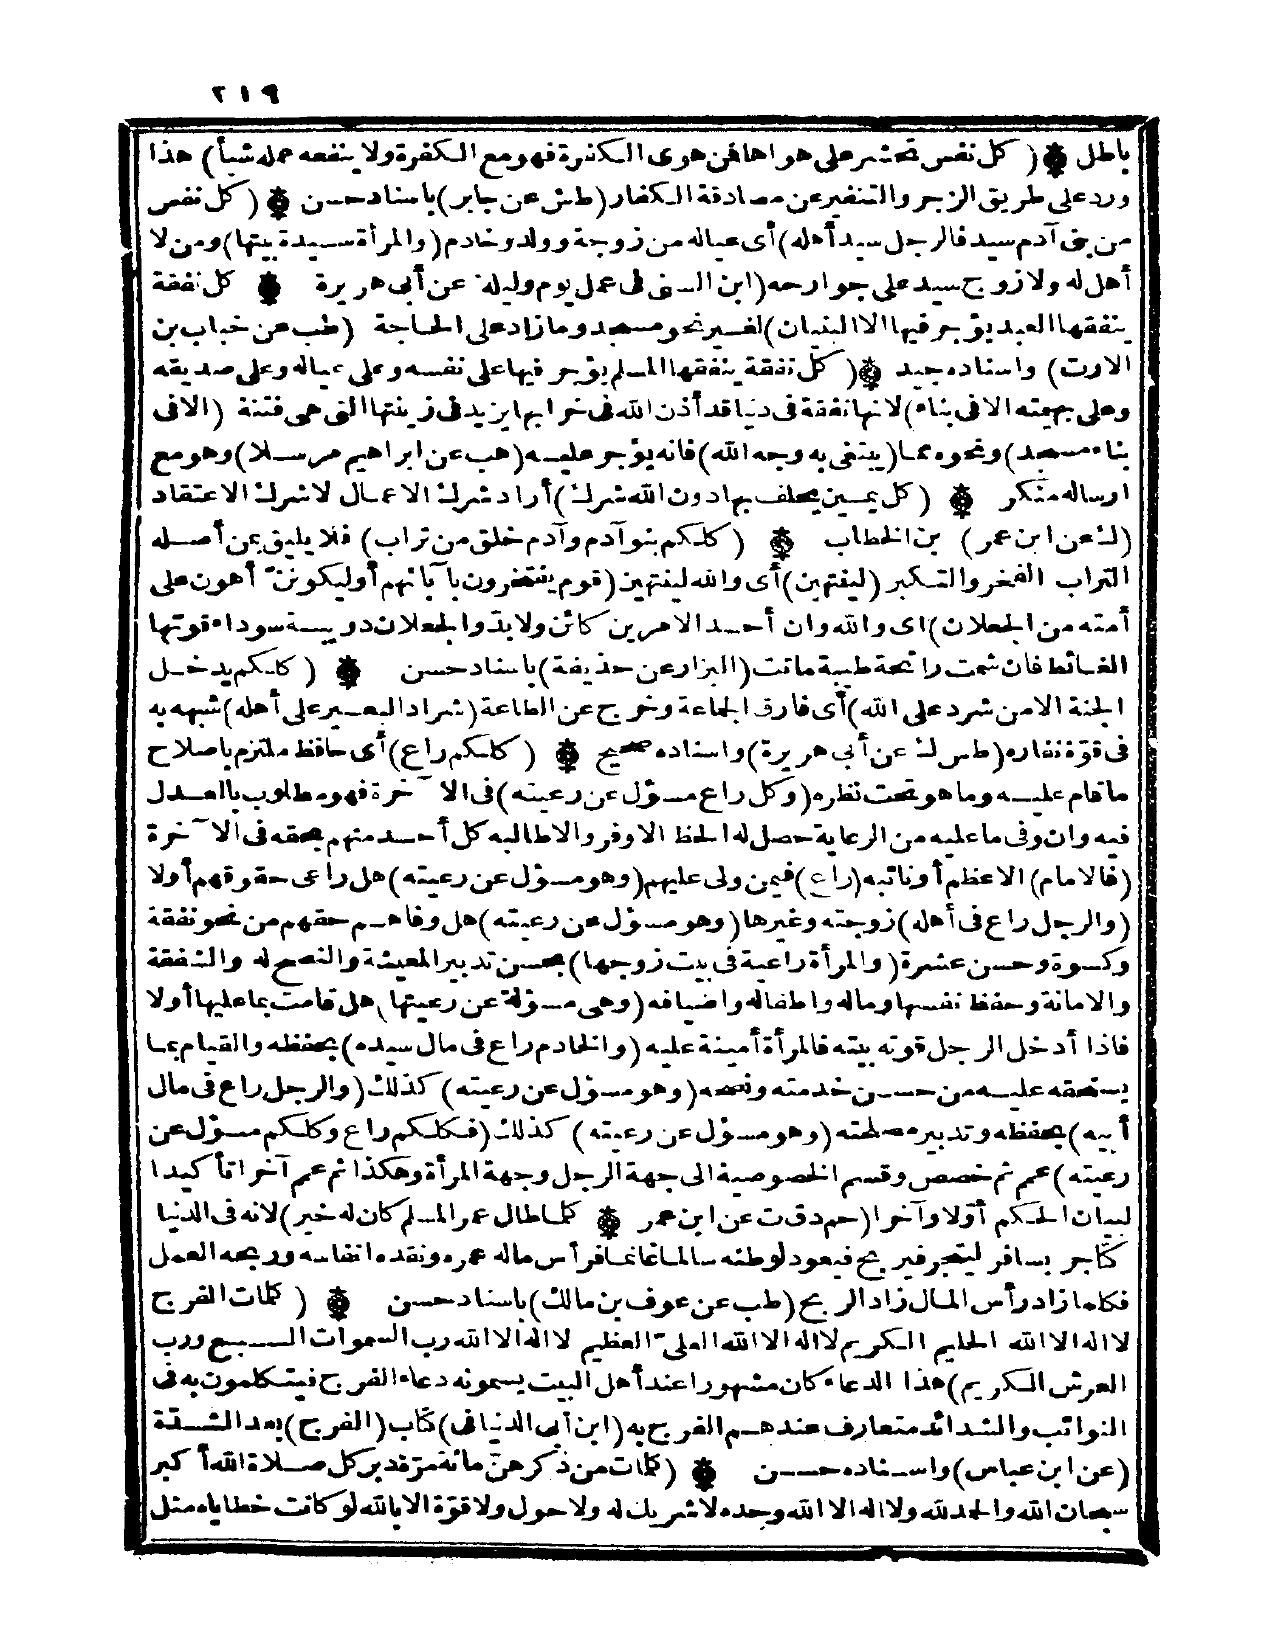 ٢١٩
باطل ۞ (كل نفس تحشر على هواها فمن هوى الكفرة فهو مع الكفرة ولا ينفعه عمله شيأ) هذا
ورد على طريق الزجر والتنفير عن مصادقة الكفار (طس عن جابر) باسناد حسن ۞ (كل نفس
من بنى آدم سيد فالرجل سيد أهله) أى عياله من زوجة وولد وخادم (والمرأة سيدة بيتها) ومن لا
أهل له ولا زوج سيد على جوارحه (ابن السنى فى عمل يوم وليلة عن أبى هريرة ۞ كل نفقة
ينفقها العبد يؤجر فيها الا البنيان) لغير نحو مسجد وما زاد على الحاجة (طب عن خباب بن
الارت) واسناده جيد ۞ (كل نفقة ينفقها المسلم يؤجر فيها على نفسه وعلى عياله وعلى صديقه
وعلى بهيمته الا فى بناء) لانها نفقة فى دنيا قد أذن الله فى خرابها يزيد فى زينتها التى هى فتنة (الا فى
بناء مسجد) ونحوه مما (يبتغى به وجه الله) فانه يؤجر عليه (هب عن ابراهيم مرسلا) وهو مع
ارساله منكر ۞ (كل يمين يحلف بها دون الله شرك) أراد شرك الاعمال لا شرك الاعتقاد
(ك عن ابن عمر) بن الخطاب ۞ (كلكم بنو آدم وآدم خلق من تراب) فلا يليق عن أصله
التراب الفخر والتكبر (لينتهين) أى والله لينتهين (قوم يفتخرون بآبائهم أو ليكونن أهون على
أمته من الجعلان) اى والله وان أحد الامرين كائن ولا بدّ والجعلان دويبة سوداء قوتها
الغائط فان شمت رائحة طيبة ماتت (البزار عن حذيفة) باسناد حسن ۞ (كلكم يدخل
الجنة الا من شرد على الله) أى فارق الجماعة وخرج عن الطاعة (شراد البعير على أهله) شبهه به
فى قوّة نفاره (طس ك عن أبى هريرة) واسناده صحيح ۞ (كلكم راع) أى حافظ ملتزم باصلاح
ما قام عليه وما هو تحت نظره (وكل راع مسؤل عن رعيته) فى الآخرة فهو مطلوب بالعدل
فيه وان وفى ما عليه من الرعاية حصل له الحظ الاوفر والا طالبه كل أحد منهم بحقه فى الآخرة
(فالامام) الاعظم أو نائبه (راع) فيمن ولى عليهم (وهو مسؤل عن رعيته) هل راعى حقوقهم أولا
(والرجل راع فى أهله) زوجته وغيرها (وهو مسؤل عن رعيته) هل وفاهم حقهم من نحو نفقة
وكسوة وحسن عشرة (والمرأة راعية فى بيت زوجها) بحسن تدبير المعيشة والنصح له والشفقة
والامانة وحفظ نفسها وماله واطفاله واضيافه (وهى مسؤلة عن رعيتها) هل قامت بما عليها أولا
فاذا أدخل الرجل قوته بيته فالمرأة أمينة عليه (والخادم راع فى مال سيده) بحفظه والقيام بما
يستحقه عليه من حسن خدمته ونصحه (وهو مسؤل عن رعيته) كذلك (والرجل راع فى مال
أبيه) بحفظه وتدبير مصلحته (وهو مسؤل عن رعيته) كذلك (فكلكم راع وكلكم مسؤل عن
رعيته) عمم ثم خصص وقسم الخصوصية الى جهة الرجل وجهة المرأة وهكذا ثم عمم آخرا تأكيدا
لبيان الحكم أوّلا وآخرا (حم دق ت عن ابن عمر ۞ كلما طال عمر المسلم كان له خير) لانه فى الدنيا
كتاجر يسافر ليتجر فيربح فيعود لوطنه سالما غانما فرأس ماله عمره ونقده انفاسه وربحه العمل
فكلما زاد رأس المال زاد الربح (طب عن عوف بن مالك) باسناد حسن ۞ (كلمات الفرج
لا اله الا الله الحليم الكريم لا اله الا الله العلىّ العظيم لا اله الا الله رب السموات السبع ورب
العرش الكريم) هذا الدعاء كان مشهورا عند أهل البيت يسمونه دعاء الفرج فيتكلمون به فى
النوائب والشدائد متعارف عندهم الفرج به (ابن أبى الدنيا فى) كتاب (الفرج) بعد الشدّة
(عن ابن عباس) واسناده حسن ۞ (كلمات من ذكرهنّ مائة مرّة دبر كل صلاة الله أكبر
سبحان الله والحمد لله ولا اله الا الله وحده لا شريك له ولا حول ولا قوّة الا بالله لو كانت خطاياه مثل